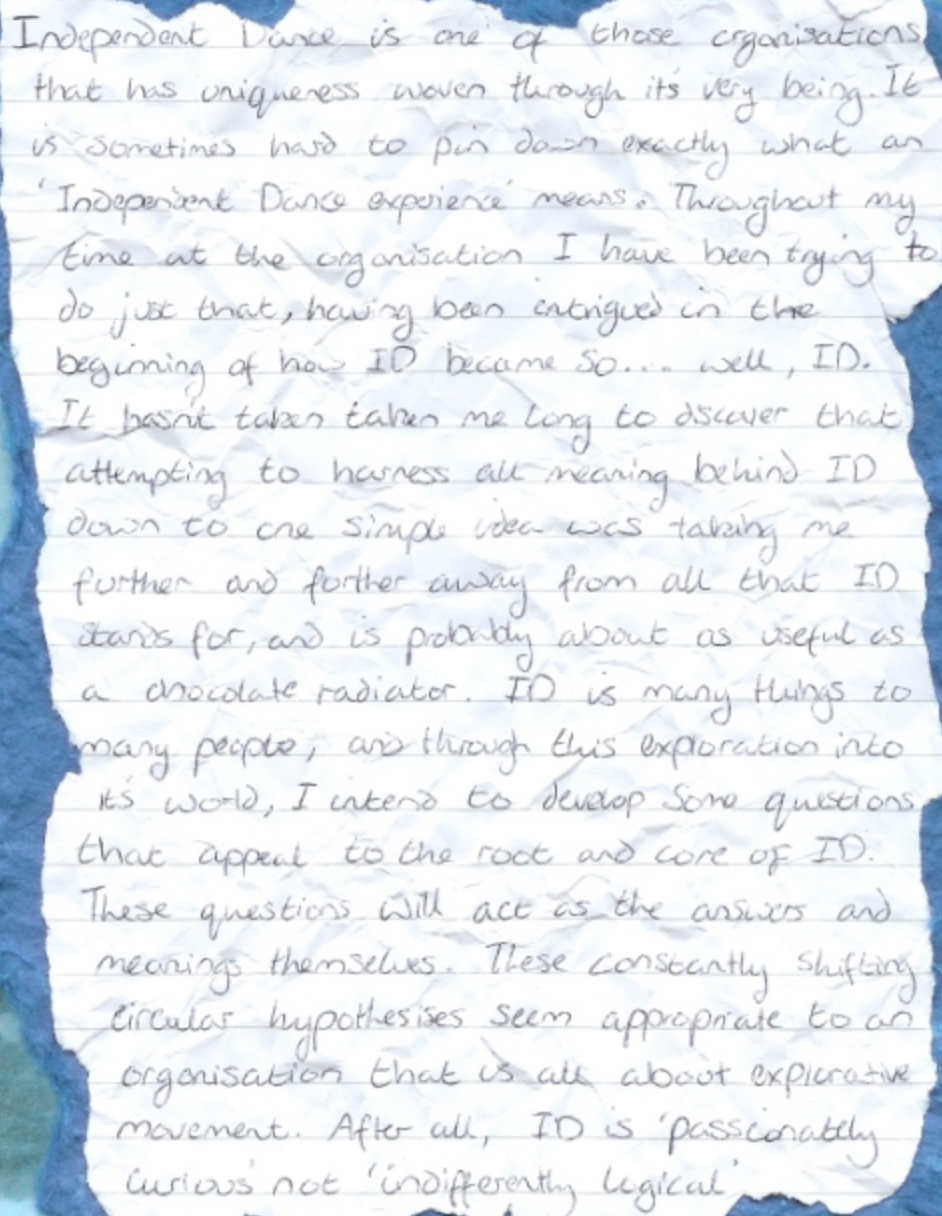 Independent Dance is one of those organisations
that has uniqueness woven through it's very being. It
is sometimes hard to pin down exactly what an
'Independent Dance experience' means. Throughout my
time at the organisation I have been trying to
do just that, having been intrigued in the
beginning of how ID became so.... well, ID.
It hasn't taken taken me long to discover that
attempting to harness all meaning behind ID
down to one simple idea was taking me
further and further away from all that ID
stands for, and is probably about as useful as
a chocolate radiator. ID is many things to
many people, and through this exploration into
it's world, I intend to develop some questions
that appeal to the root and core of ID.
These questions will act as the answers and
meanings themselves. These constantly shifting
circular hypothesises seem appropriate to an
organisation that is all about explorative
movement. After all, ID is 'passionately
curious' not 'indifferently logical'